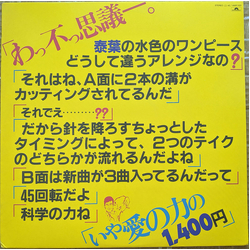 「わっ不っ思議ー。
泰葉の水色のワンピース
どうして違うアレンジなの?
「それはね、A面に2本の溝が
カッティングされてるんだ」
「それでぇ………??」
「だから針を降ろすちょっとした
タイミングによって、2つのテイク
のどちらかが流れるんだよね」
「B面は新曲が3曲入ってるんだって」
「45回転だよ」
「科学の力ね」
「いや愛の力の
1,400円」